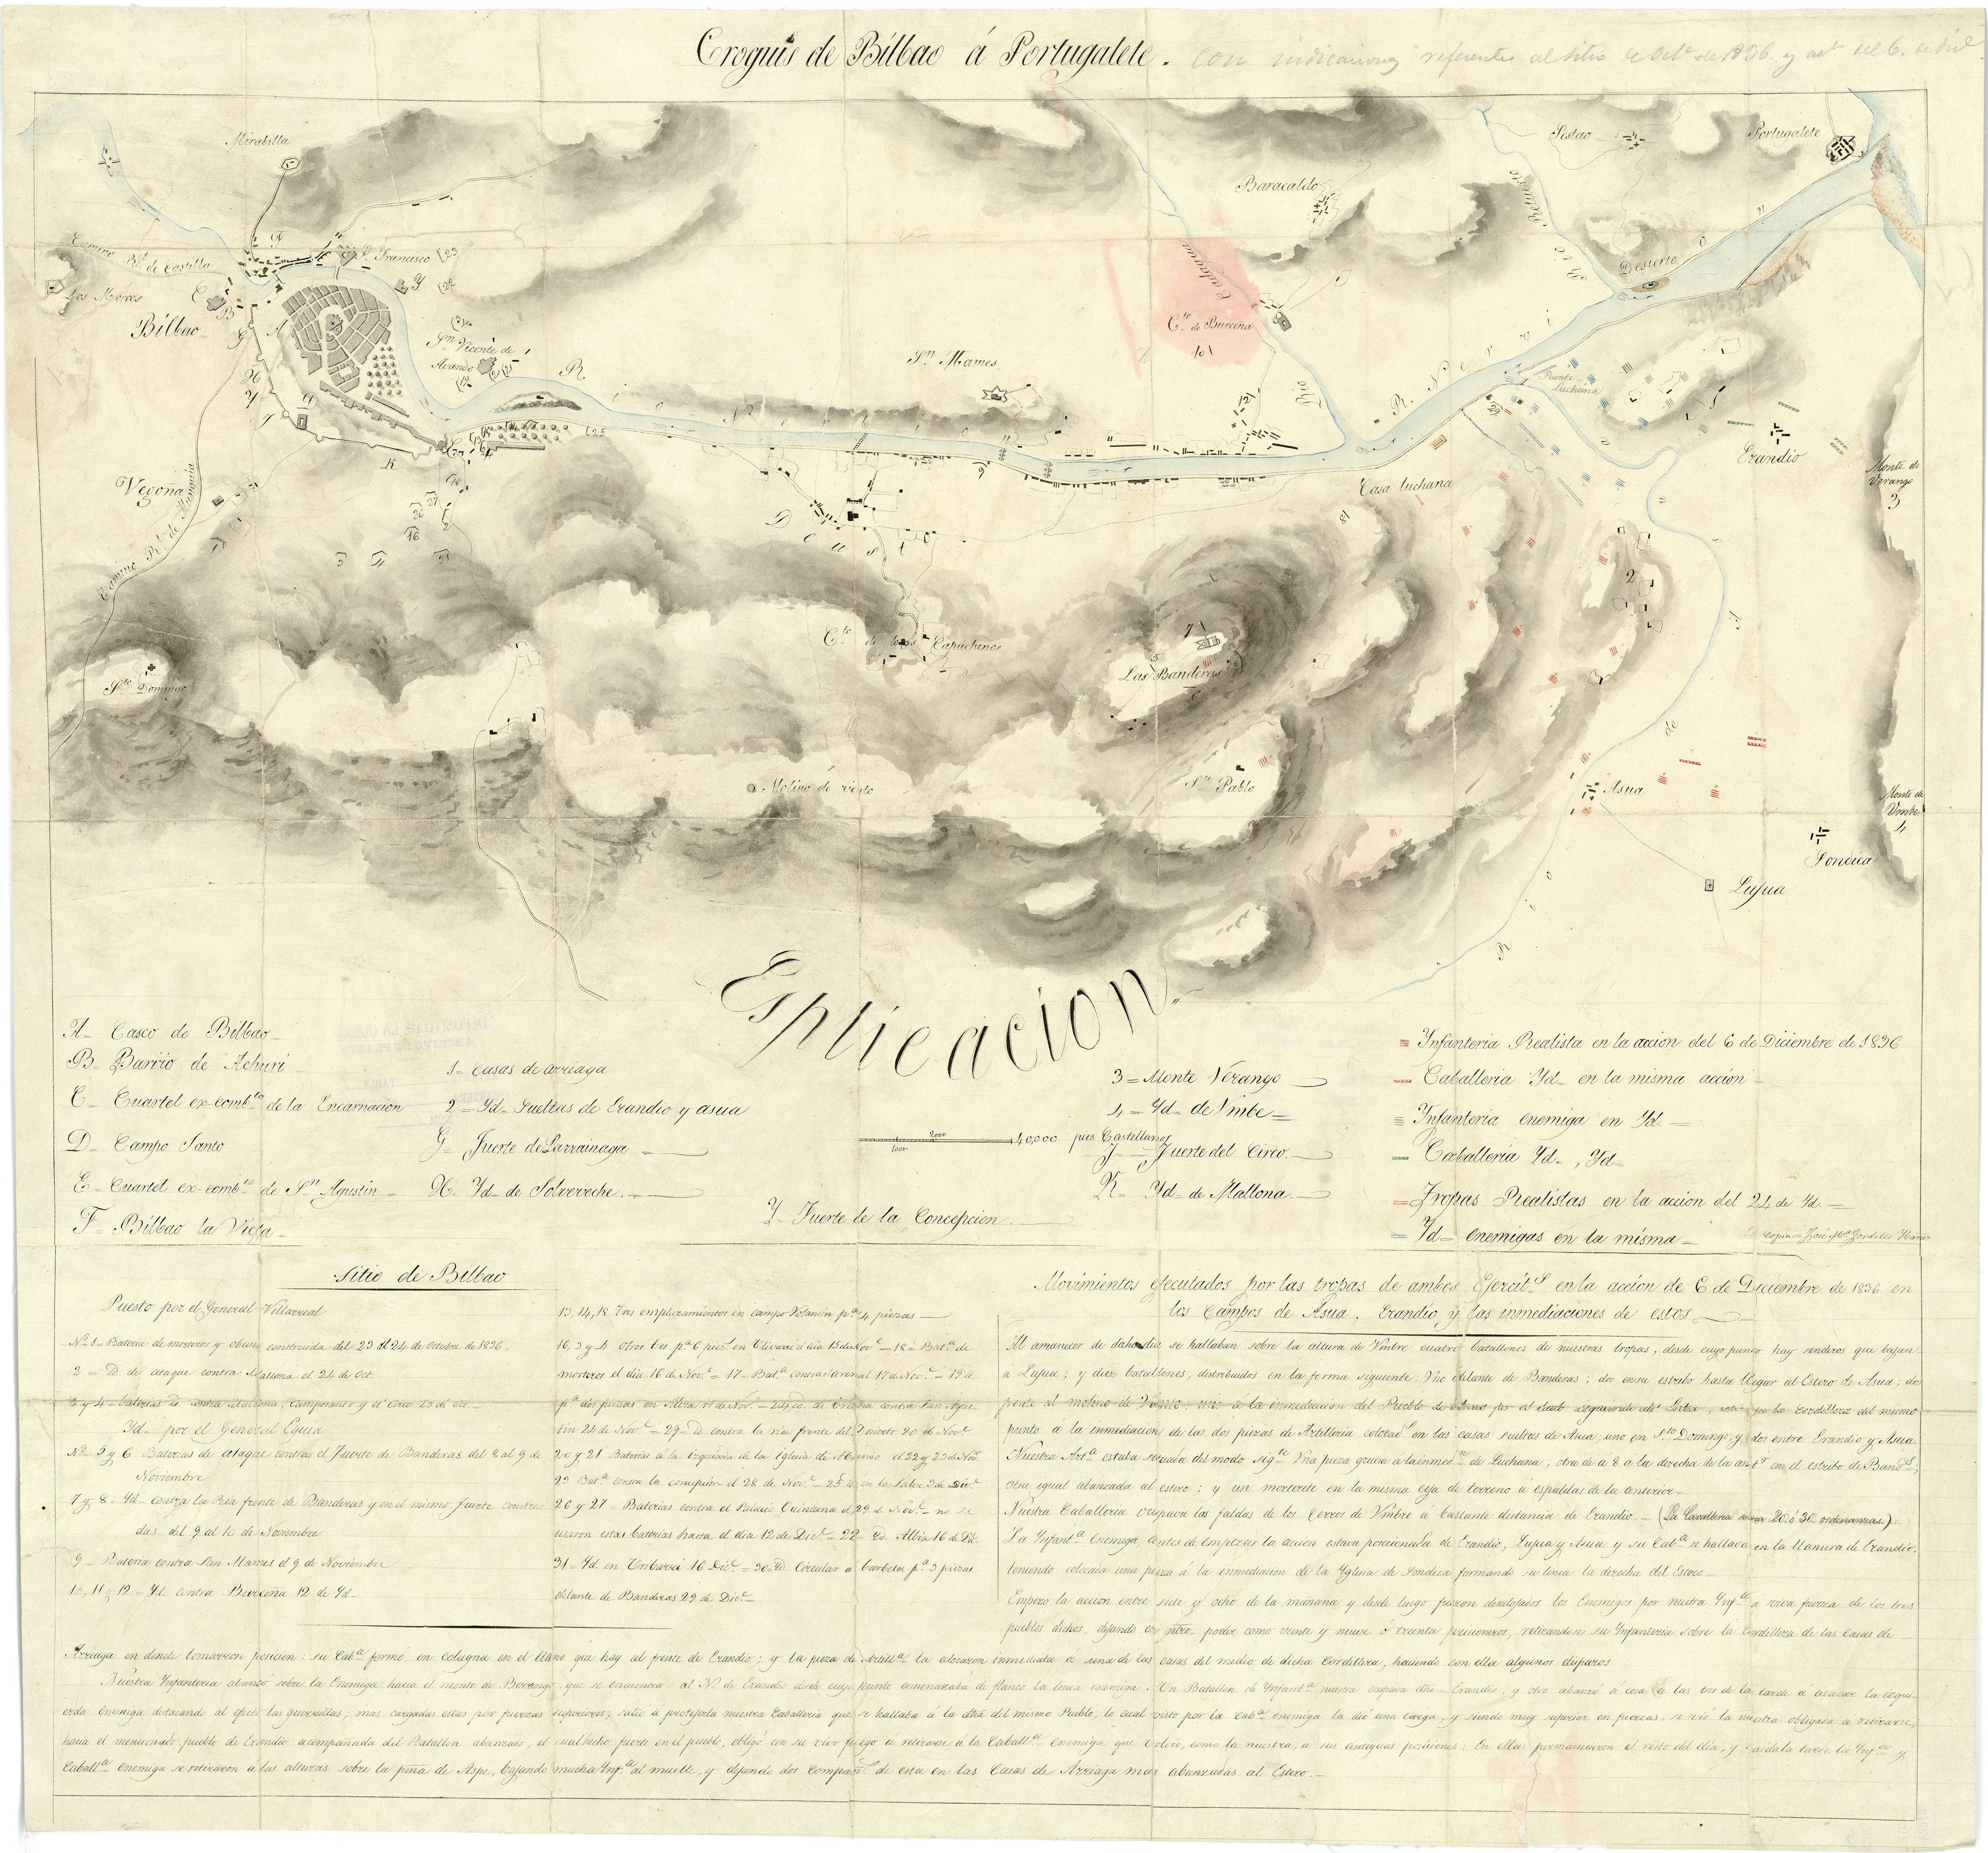 Croquis de Bilbao á Portugalete. con indicaciones referentes al sitio de Octe de 1836 y act del 6. de Dice
Mirabilla
Camino Rl de Castilla
Los Morros
Bilbao
Sn Francisco
Sn Vicente de Avando
Vegoña
Camino Rl de Munguia
Sto Domingo
Deusto
R. Nervion
Sn Mames
Cto de Burceña
Rio Cadagua
Baracaldo
Sestao
Portugalete
Desierto
R. Nervion
Puente Luchana
Casa Luchana
Erandio
Monte de Verango
3
Cto de los Capuchinos
Las Banderas
Molino de viento
Sn Pablo
Asua
Rio de Asua
Monte de Vmbe
4
Sondica
Lujua
Esplicacion
A- Casco de Bilbao-
B- Barrio de Achuri
C- Cuartel ex-combto de la Encarnacion
D- Campo Santo
E- Cuartel ex-combto de Sn Agustin-
F- Bilbao la Vieja-
1- Casas de arriaga
2= Yd- Sueltas de Erandio y asua
G- Fuerte de Larrainaga-
H- Yd- de Solveveche.-
Y- Fuerte de la Concepcion
2000
1000
40,000 pies Castellanos
3= Monte Verango
4= Yd- de Vmbe=
J- Fuerte del Circo.-
K- Yd- de Mallona.-
Ynfanteria Realista en la accion del 6 de Diciembre de 1836
Caballeria Yd- en la misma accion-
Ynfanteria enemiga en Yd.-
Caballeria Yd-, Yd-
Tropas Realistas en la accion del 24 de Yd.-
Yd- enemigas en la misma-
Es copia= José Ma Gordillo
Sitio de Bilbao
Puesto por el General Villarreal
No 1- Bateria de morteros y obuses construida del 23 al 24 de Octubre de 1836-
2- Yd de ataque contra Mallona el 24 de Oct.
3 y 4- baterias Yd contra Mallona, Camposanto y el Circo 25 de Oct.-
Yd- por el General Eguia
No 5 y 6 Baterias de ataque contra el Fuerte de Banderas del 8 al 9 de
Noviembre
7 y 8- Yd- contra la Ria frente de Banderas y en el mismo fuerte construi
das del 9 al 10 de Noviembre
9- Bateria contra San Mames el 9 de Noviembre
10, 11 y 12- Yd. contra Burceña 12 de Yd-
13, 14, 18. Tres emplazamientos en campo Volantin pa 4 piezas-
16, 3 y 4 Otros tres pa 6 piezs en el dia 15 de Nove-18- Bata de
morteros el dia 16 de Nove.- 17- Bata contra el arenal 17 de Nove.- 19 Yd.
pa dos piezas en Albia
tin 24 de Nove- 29- Yd contra la ria frente del Desierto 20 de Nove
20 y 21 Baterias á la izquierda de la Iglesia de Abando el 22 y 23 de Nove.
23 Bata contra la concepcion el 28 de Nove.- 25 Yd en la Salve 3 de Dice
26 y 27= Baterias contra el Palacio Quintana el 29 de Nove.- no se
usaron estas baterias hasta el dia 12 de Dice- 22- Yd. Albia 16 de Dic.
31- Yd. en Uribarri 16 Dice.- 30- Yd Circular a barbeta pa 3 piezas
delante de Banderas 29 de Dice-
Movimientos egecutados por las tropas de ambos Egercits en la accion de 6 de Diciembre de 1836 en
los Campos de Asua, Erandio, y las inmediaciones de estos.
Al amanecer de dicho dia se hallaban sobre la altura de Vmbre cuatro batallones de nuestras tropas, desde cuyo punto hay senderos que bajan
a Lujua; y diez batallones, distribuidos en la forma siguiente: Vno delante de Banderas; dos en su estribo hasta llegar al Estero de Asua; dos
frente al molino de Viento, uno a la inmediacion del Pueblo de por el lado izquierdo del la cordillera del mismo
punto á la inmediacion de las dos piezas de Artilleria colocads en las casas sueltas de Asua; uno en Sto Domingo y dos entre Erandio y Asua.
Nuestra Arta estaba situada del modo sigte Vna pieza gruesa á la inmedn de Luchana; otra de a 8 a la derecha de la antr en el estribo de Bands;
otra igual abanzada al estero; y un morterete en la misma ceja de terreno a espaldas de la anterior-
Nuestra Caballeria ocupava las faldas de los cerros de Vmbre á bastante distancia de Erandio.- (La Cavalleria seria 20 ó 30 ordenanzas)-
La Ynfanta Enemiga, antes de empezar la accion estava posicionada de Erandio, Lujua y Asua y su Caba se hallava en la llanura de Erandio-
teniendo colocada una pieza á la inmediacion de la Yglesia de Sondica formando su linea la derecha del Estero-
Empezó la accion entre siete y ocho de la mañana y desde luego fueron desalojados los Enemigos por nuestra Ynfta a viva fuerza de los tres
pueblos dichos, dejando en ntro poder como veinte y nueve ó treinta prisioneros, retirandose su Ynfanteria sobre la Cordillera de las Casas de-
Arriaga en donde tomarron posicion: su Caba formó en coluna en el llano que hay al frente de Erandio; y la pieza de Artilla la colocaron inmediata a una de las casas del medio de dicha Cordillera, haciendo con ella algunos disparos
Nuestra Ynfanteria abanzó sobre la Enemiga hacia el monte de Berango que se encuentra al N. de Erandio desde cuyo punto amenazaba de flanco la linea enemiga. Un Batallon de Ynfanta nuestra ocupava dho- Erandio, y otro abanzó á cosa de las tres de la tarde á atacar la izqui-
erda Enemiga destacando al efecto las guerrillas; mas cargadas estas por fuerzas superiores, salió á protejerla nuestra Caballeria que se hallaba á la dra del mismo Pueblo, lo cual visto por la Caba enemiga la dió una carga, y siendo muy superior en fuerzas, se vió la nuestra obligada á retirarse,
hacia el mencionado pueblo de Erandio acompañada del Batallon abanzado, el cual hecho fuerte en el pueblo, obligó con su vivo fuego a retirarse á la Caballa Enemiga que volvió, como la nuestra, a sus antiguas posiciones: En ellas permanecieron el resto del dia, y caida la tarde la Ynfta y
Caballa Enemiga se retiraron a las alturas sobre la peña de Aspe, bajando mucha Ynfa al muelle, y dejando dos Compañs de esta en las Casas de Arriaga mas abanzadas al Estero.-